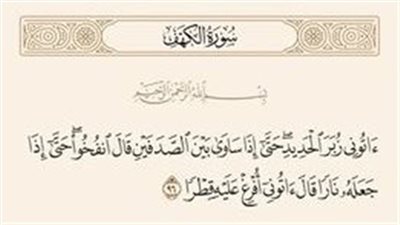 سُورَةُ الكَهْفِ
بِسْمِ اللَّهِ الرَّحْمَٰنِ الرَّحِيمِ
ءَاتُونِى زُبَرَ الْحَدِيدِ ۖ حَتَّىٰٓ إِذَا سَاوَىٰ بَيْنَ الصَّدَفَيْنِ قَالَ انفُخُوا ۖ حَتَّىٰٓ إِذَا
جَعَلَهُۥ نَارًا قَالَ ءَاتُونِىٓ أُفْرِغْ عَلَيْهِ قِطْرًا ٩٦